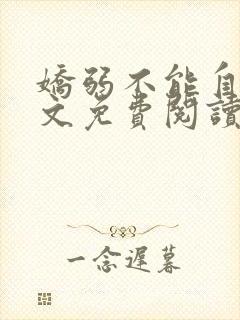 嬌弱不能自
文免費閱讀
一念遲暮